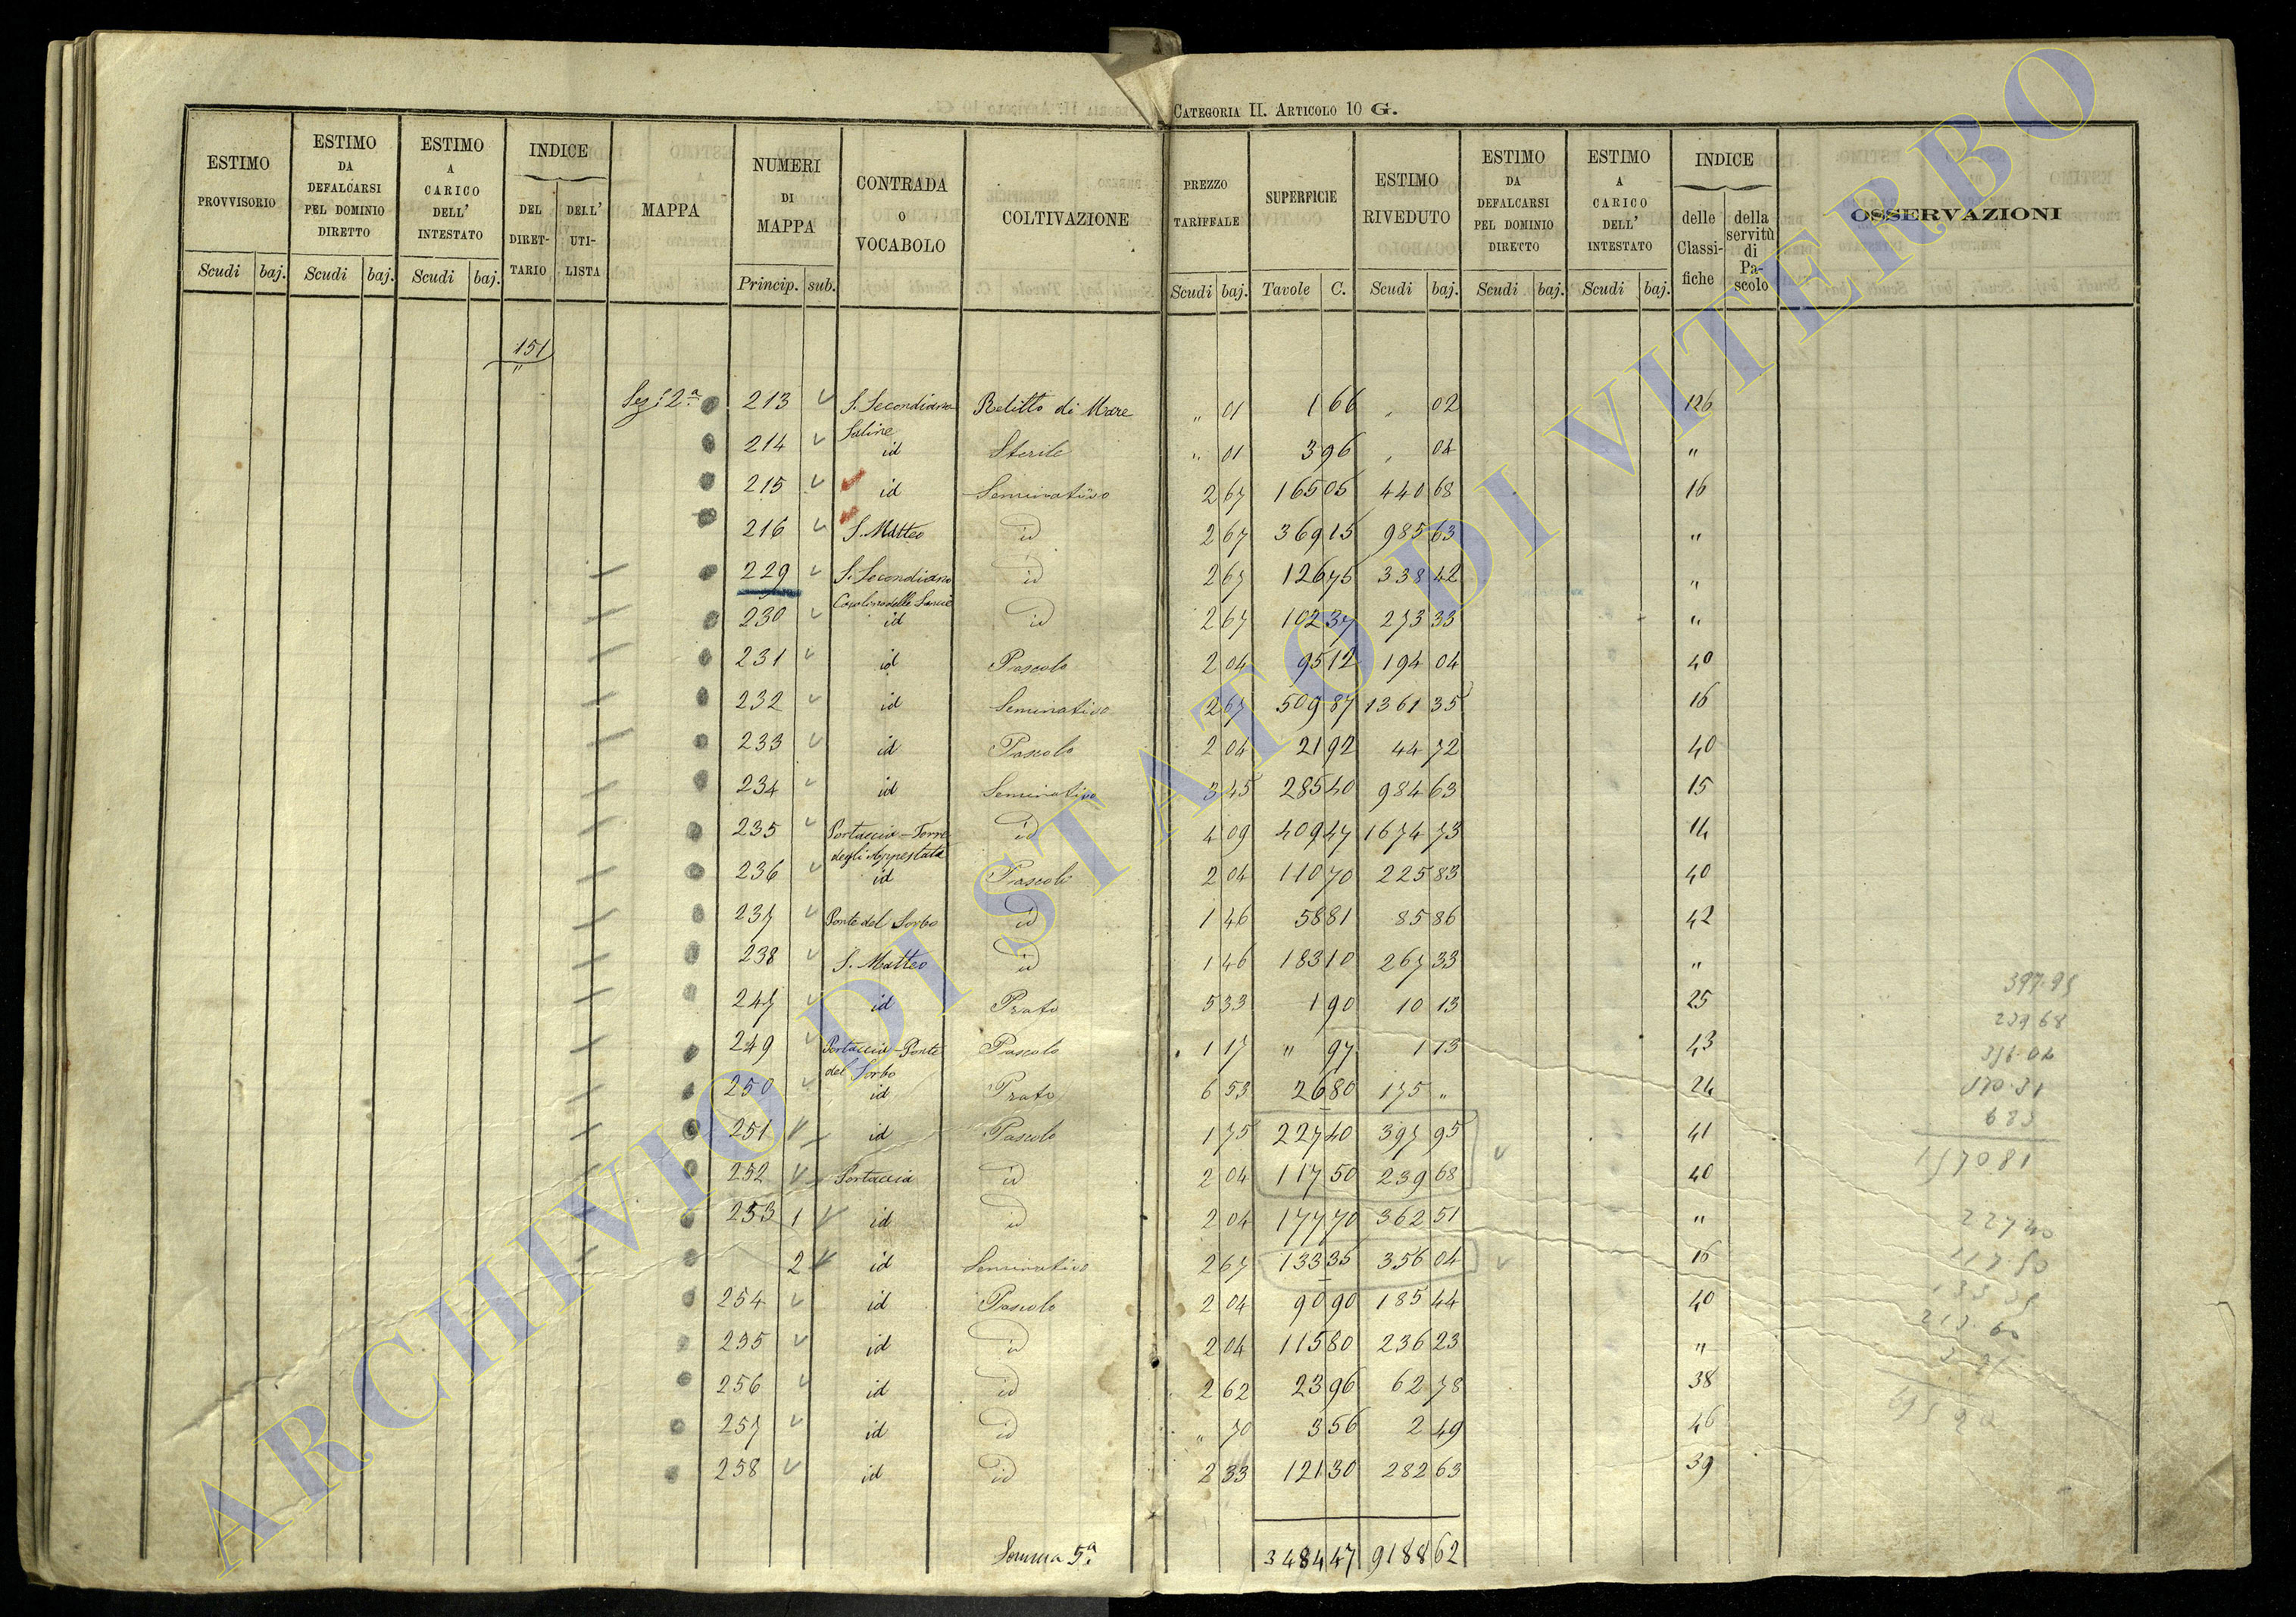 CATEGORIA II. ARTICOLO 10 G.
ESTIMO PROVVISORIO | ESTIMO DA DEFALCARSI PEL DOMINIO DIRETTO | ESTIMO A CARICO DELL' INTESTATO | INDICE | MAPPA | NUMERI DI MAPPA | CONTRADA O VOCABOLO | COLTIVAZIONE | PREZZO TARIFFALE | SUPERFICIE | ESTIMO RIVEDUTO | ESTIMO DA DEFALCARSI PEL DOMINIO DIRETTO | ESTIMO A CARICO DELL' INTESTATO | INDICE | OSSERVAZIONI
DEL DIRET-TARIO | DELL' UTI-LISTA | delle Classi-fiche | della servitù di Pa-scolo
Scudi | baj. | Scudi | baj. | Scudi | baj. | Princip. | sub. | Scudi | baj. | Tavole | C. | Scudi | baj. | Scudi | baj. | Scudi | baj.
151
"
Sez: 2a 213 S. Secondiano Relitto di Mare " 01 1 66 " 02 126
Saline
214 id Sterile " 01 3 96 " 04 "
215 id Seminativo 2 67 165 05 440 68 16
216 S. Matteo id 2 67 369 15 985 63 "
229 S. Secondiano id 2 67 126 75 338 42 "
230 id id 2 67 102 37 273 33 "
231 id Pascolo 2 04 95 12 194 04 40
232 id Seminativo 2 67 509 87 1361 35 16
233 id Pascolo 2 04 21 92 44 72 40
234 id Seminativo 3 45 285 40 984 63 15
235 Portaccia - Torre id 4 09 409 47 1674 73 14
degli Appestati
236 id Pascolo 2 04 110 70 225 83 40
237 Ponte del Sorbo id 1 46 58 81 85 86 42
238 S. Matteo id 1 46 183 10 267 33 "
247 id Prato 5 33 1 90 10 13 25
249 Portaccia - Ponte Pascolo 1 17 " 97 1 13 43
del Sorbo
250 id Prato 6 53 26 80 175 " 24
251 id Pascolo 1 75 227 40 397 95 41
252 Portaccia id 2 04 117 50 239 68 40
253 1 id id 2 04 177 70 362 51 "
2 id Seminativo 2 67 133 35 356 04 16
254 id Pascolo 2 04 90 90 185 44 40
255 id id 2 04 115 80 236 23 "
256 id id 2 62 23 96 62 78 38
257 id id " 70 3 56 2 49 46
258 id id 2 33 121 30 282 63 39
Somma 5a 3484 47 9188 62
397.95
239 68
356.04
227 40
117.50
ARCHIVIO DI STATO DI VITERBO